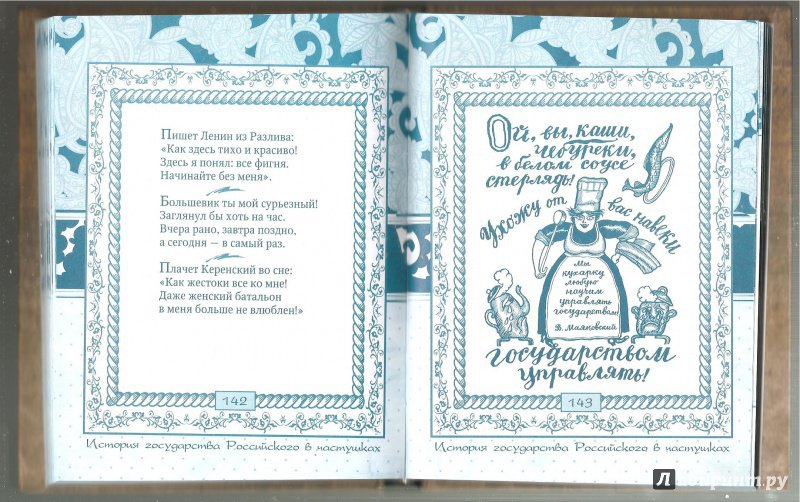 Пишет Ленин из Разлива:
«Как здесь тихо и красиво!
Здесь я понял: все фигня.
Начинайте без меня».
Большевик ты мой сурьезный!
Заглянул бы хоть на час.
Вчера рано, завтра поздно,
а сегодня — в самый раз.
Плачет Керенский во сне:
«Как жестоки все ко мне!
Даже женский батальон
в меня больше не влюблен!»
142
История государства Российского в частушках
Ой, вы, каши,
чебуреки,
в белом соусе
стерлядь!
Ухожу от вас навеки
Мы
кухарку
любую
научим
управлять
государством!
В. Маяковский
государством
управлять!
143
История государства Российского в частушках
Лабиринт.ру